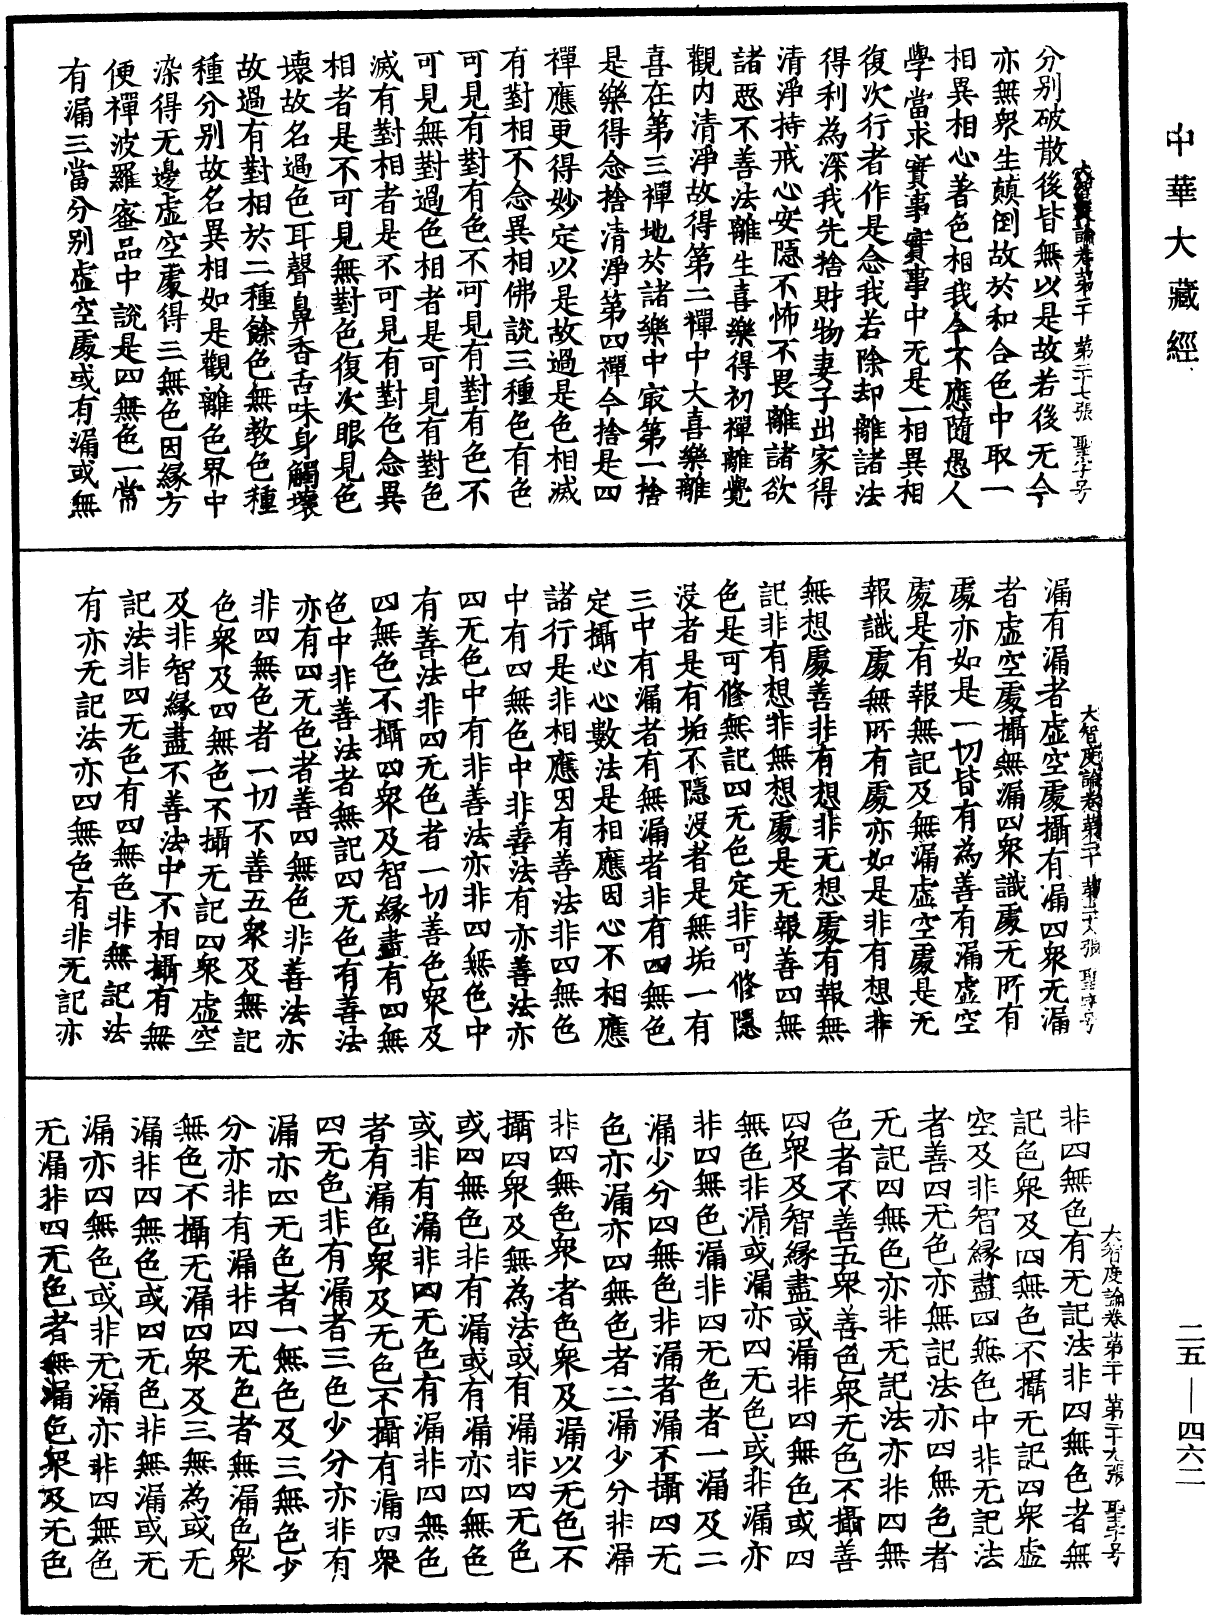 中華大藏經
大智度論卷第二十　第二十七張　聖字号
分别破散後皆無以是故若後无今
亦無衆生顛倒故於和合色中取一
相異相心著色相我今不應隨愚人
學當求實事實事中无是一相異相
復次行者作是念我若除却離諸法
得利為深我先捨財物妻子出家得
清淨持戒心安隱不怖不畏離諸欲
諸惡不善法離生喜樂得初禪離覺
觀内清淨故得第二禪中大喜樂離
喜在第三禪地於諸樂中㝡第一捨
是樂得念捨清淨第四禪今捨是四
禪應更得妙定以是故過是色相滅
有對相不念異相佛說三種色有色
可見有對有色不可見有對有色不
可見無對過色相者是可見有對色
滅有對相者是不可見有對色念異
相者是不可見無對色復次眼見色
壞故名過色耳聲鼻香舌味身觸壞
故過有對相於二種餘色無教色種
種分别故名異相如是觀離色界中
染得无邊虛空處得三無色因緣方
便禪波羅蜜品中說是四無色一常
有漏三當分别虛空處或有漏或無
大智度論卷第二十　第二十八張　聖字号
漏有漏者虛空處攝有漏四衆无漏
者虛空處攝無漏四衆識處无所有
處亦如是一切皆有為善有漏虛空
處是有報無記及無漏虛空處是无
報識處無所有處亦如是非有想非
無想處善非有想非无想處有報無
記非有想非無想處是无報善四無
色是可修無記四无色定非可修隱
沒者是有垢不隱沒者是無垢一有
三中有漏者有無漏者非有四無色
定攝心心數法是相應因心不相應
諸行是非相應因有善法非四無色
中有四無色中非善法有亦善法亦
四无色中有非善法亦非四無色中
有善法非四无色者一切善色衆及
四無色不攝四衆及智緣盡有四無
色中非善法者無記四无色有善法
亦有四无色者善四無色非善法亦
非四無色者一切不善五衆及無記
色衆及四無色不攝无記四衆虛空
及非智緣盡不善法中不相攝有無
記法非四无色有四無色非無記法
有亦无記法亦四無色有非无記亦
大智度論卷第二十　第二十九張　聖字号
非四無色有无記法非四無色者無
記色衆及四無色不攝无記四衆虛
空及非智緣盡四無色中非无記法
者善四无色亦無記法亦四無色者
无記四無色亦非无記法亦非四無
色者不善五衆善色衆无色不攝善
四衆及智緣盡或漏非四無色或四
無色非漏或漏亦四无色或非漏亦
非四無色漏非四无色者一漏及二
漏少分四無色非漏者漏不攝四无
色亦漏亦四無色者二漏少分非漏
非四無色衆者色衆及漏以无色不
攝四衆及無為法或有漏非四无色
或四無色非有漏或有漏亦四無色
或非有漏非四无色有漏非四無色
者有漏色衆及无色不攝有漏四衆
四无色非有漏者三色少分亦非有
漏亦四无色者一無色及三無色少
分亦非有漏非四无色者無漏色衆
無色不攝无漏四衆及三無為或无
漏非四無色或四无色非無漏或无
漏亦四無色或非无漏亦非四無色
无漏非四无色者無漏色衆及无色
二五—四六二